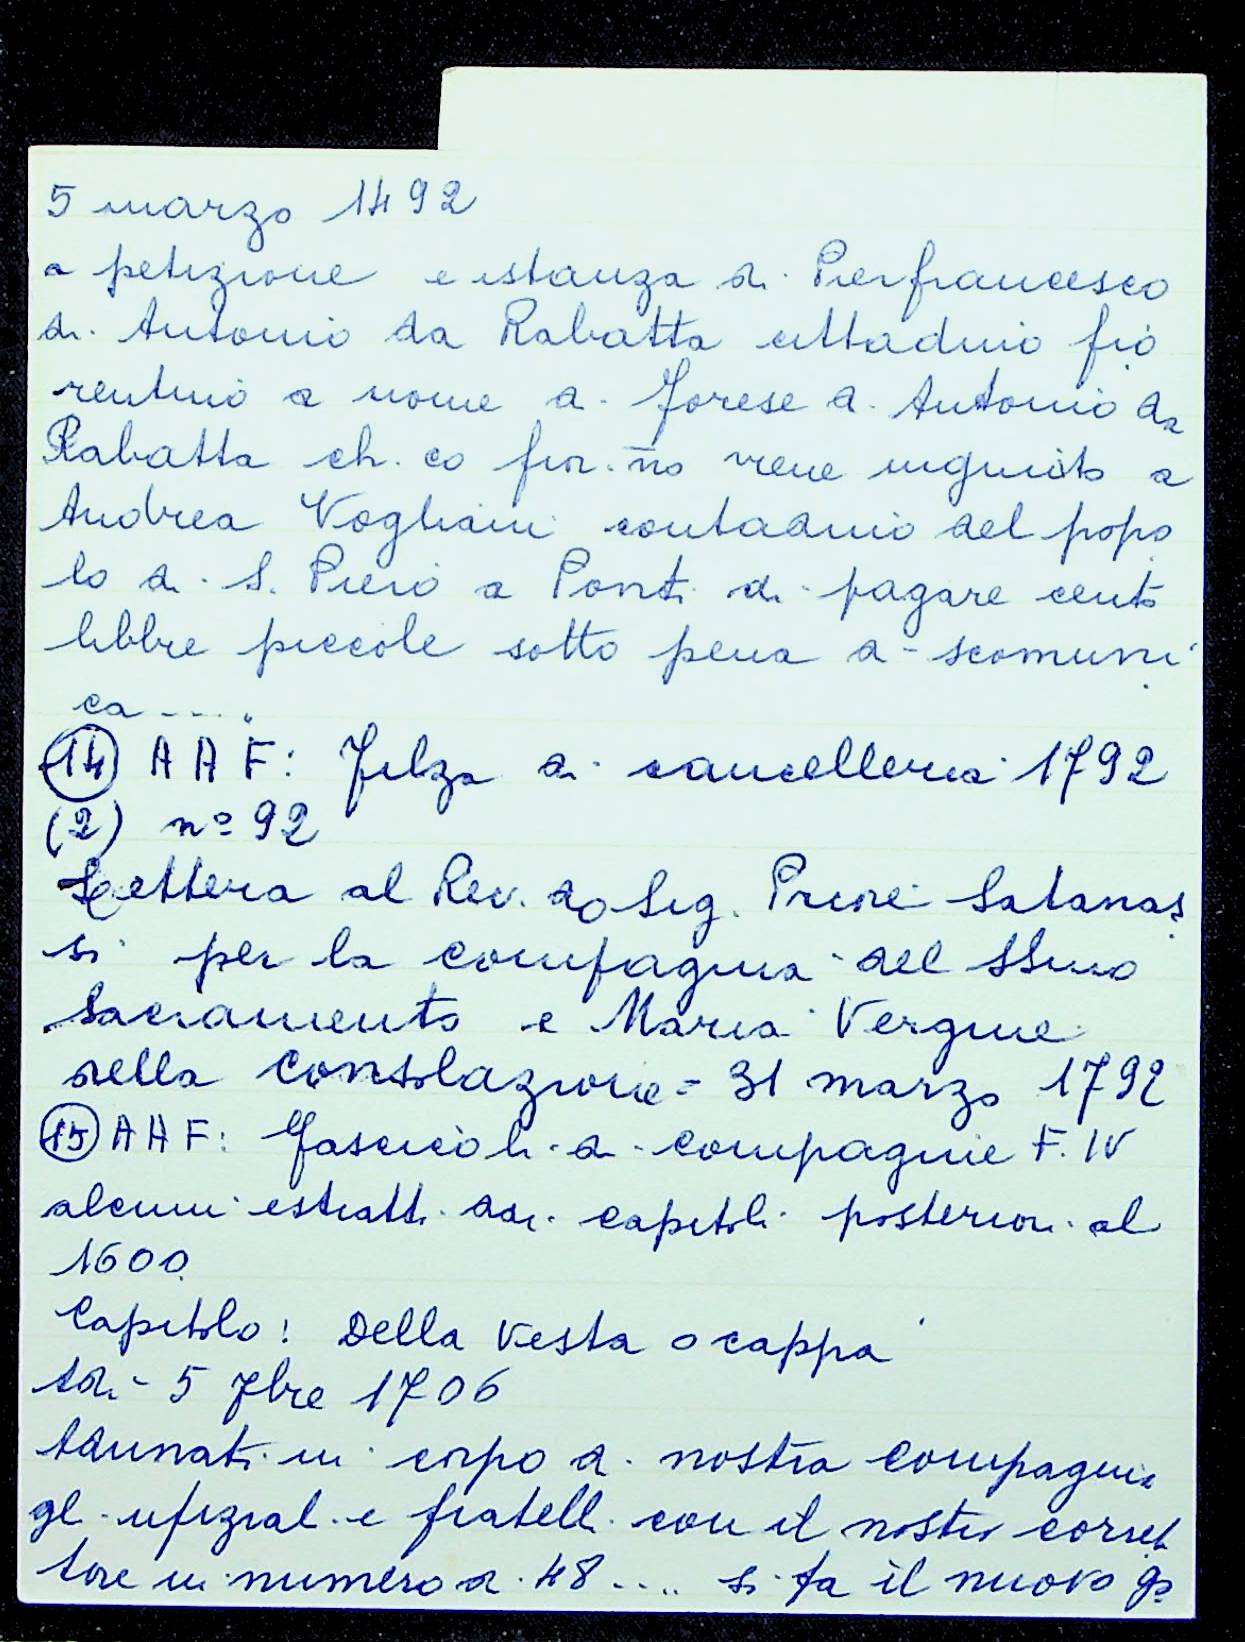 5 marzo 1492
a petizione e istanza di Pierfrancesco
di Antonio da Rabatta cittadino fio
rentino a nome di Forese di Antonio da
Rabatta ch. co fior. no viene ingiunto a
Andrea Vogliani contadino del popo
lo di S. Piero a Ponti di pagare cento
libbre piccole sotto pena di scomuni
ca ....
(14) AAF: Filza di cancelleria 1792
(2) nº 92
Lettera al Rev. do Sig. Priore Satanas
si per la compagnia del SSmo
Sacramento e Maria Vergine
della Consolazione = 31 marzo 1792
(15) AAF: Fascicoli di compagnie F. IV
alcuni estratti dai capitoli posteriori al
1600
Capitolo: Della Vesta o cappa
Adì - 5 7bre 1706
Adunati in corpo di nostra compagnia
gl. ufizial. e fratelli con il nostro corret
tore in numero di 48 .... si fa il nuovo go